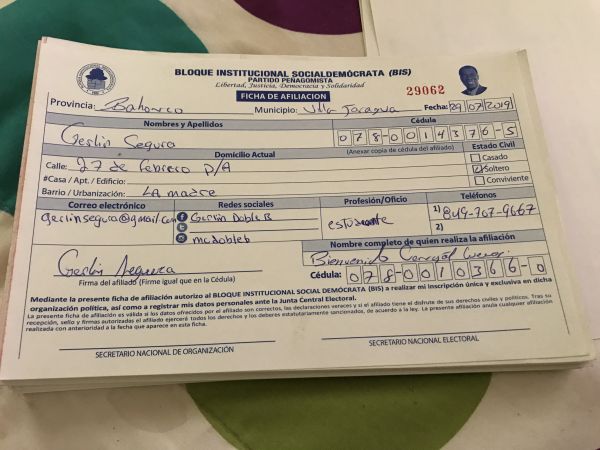 BLOQUE INSTITUCIONAL SOCIALDEMÓCRATA (BIS)
PARTIDO PEÑAGOMISTA
Libertad, Justicia, Democracia y Solidaridad
FICHA DE AFILIACION
29062
Provincia: Bahoruco Municipio: Villa Jaragua Fecha: 29/07/2019
Nombres y Apellidos Cédula
Gerlin Segura 078-0014376-5
Domicilio Actual (Anexar copia de cédula del afiliado) Estado Civil
Calle: 27 de Febrero P/A Casado
#Casa / Apt. / Edificio: Soltero
Barrio / Urbanización: LA madre Conviviente
Correo electrónico Redes sociales Profesión/Oficio Teléfonos
gerlinsegura@gmail.com Gerlin Doble B estudiante 1) 849-707-9667
mcdobleb 2)
Nombre completo de quien realiza la afiliación
Gerlin Segura Bienvenido
Firma del afiliado (Firme igual que en la Cédula) Cédula: 078-0010366-0
Mediante la presente ficha de afiliación autorizo al BLOQUE INSTITUCIONAL SOCIAL DEMÓCRATA (BIS) a realizar mi inscripción única y exclusiva en dicha
organización política, así como a registrar mis datos personales ante la Junta Central Electoral.
La presente ficha de afiliación es válida si los datos ofrecidos por el afiliado son correctos, las declaraciones veraces y si el afiliado tiene el disfrute de sus derechos civiles y políticos. Tras su
recepción, sello y firmas autorizadas el afiliado ejercerá todos los derechos y los deberes estatutariamente sancionados, de acuerdo a la ley. La presente afiliación anula cualquier afiliación
realizada con anterioridad a la fecha que aparece en esta ficha.
SECRETARIO NACIONAL DE ORGANIZACIÓN SECRETARIO NACIONAL ELECTORAL